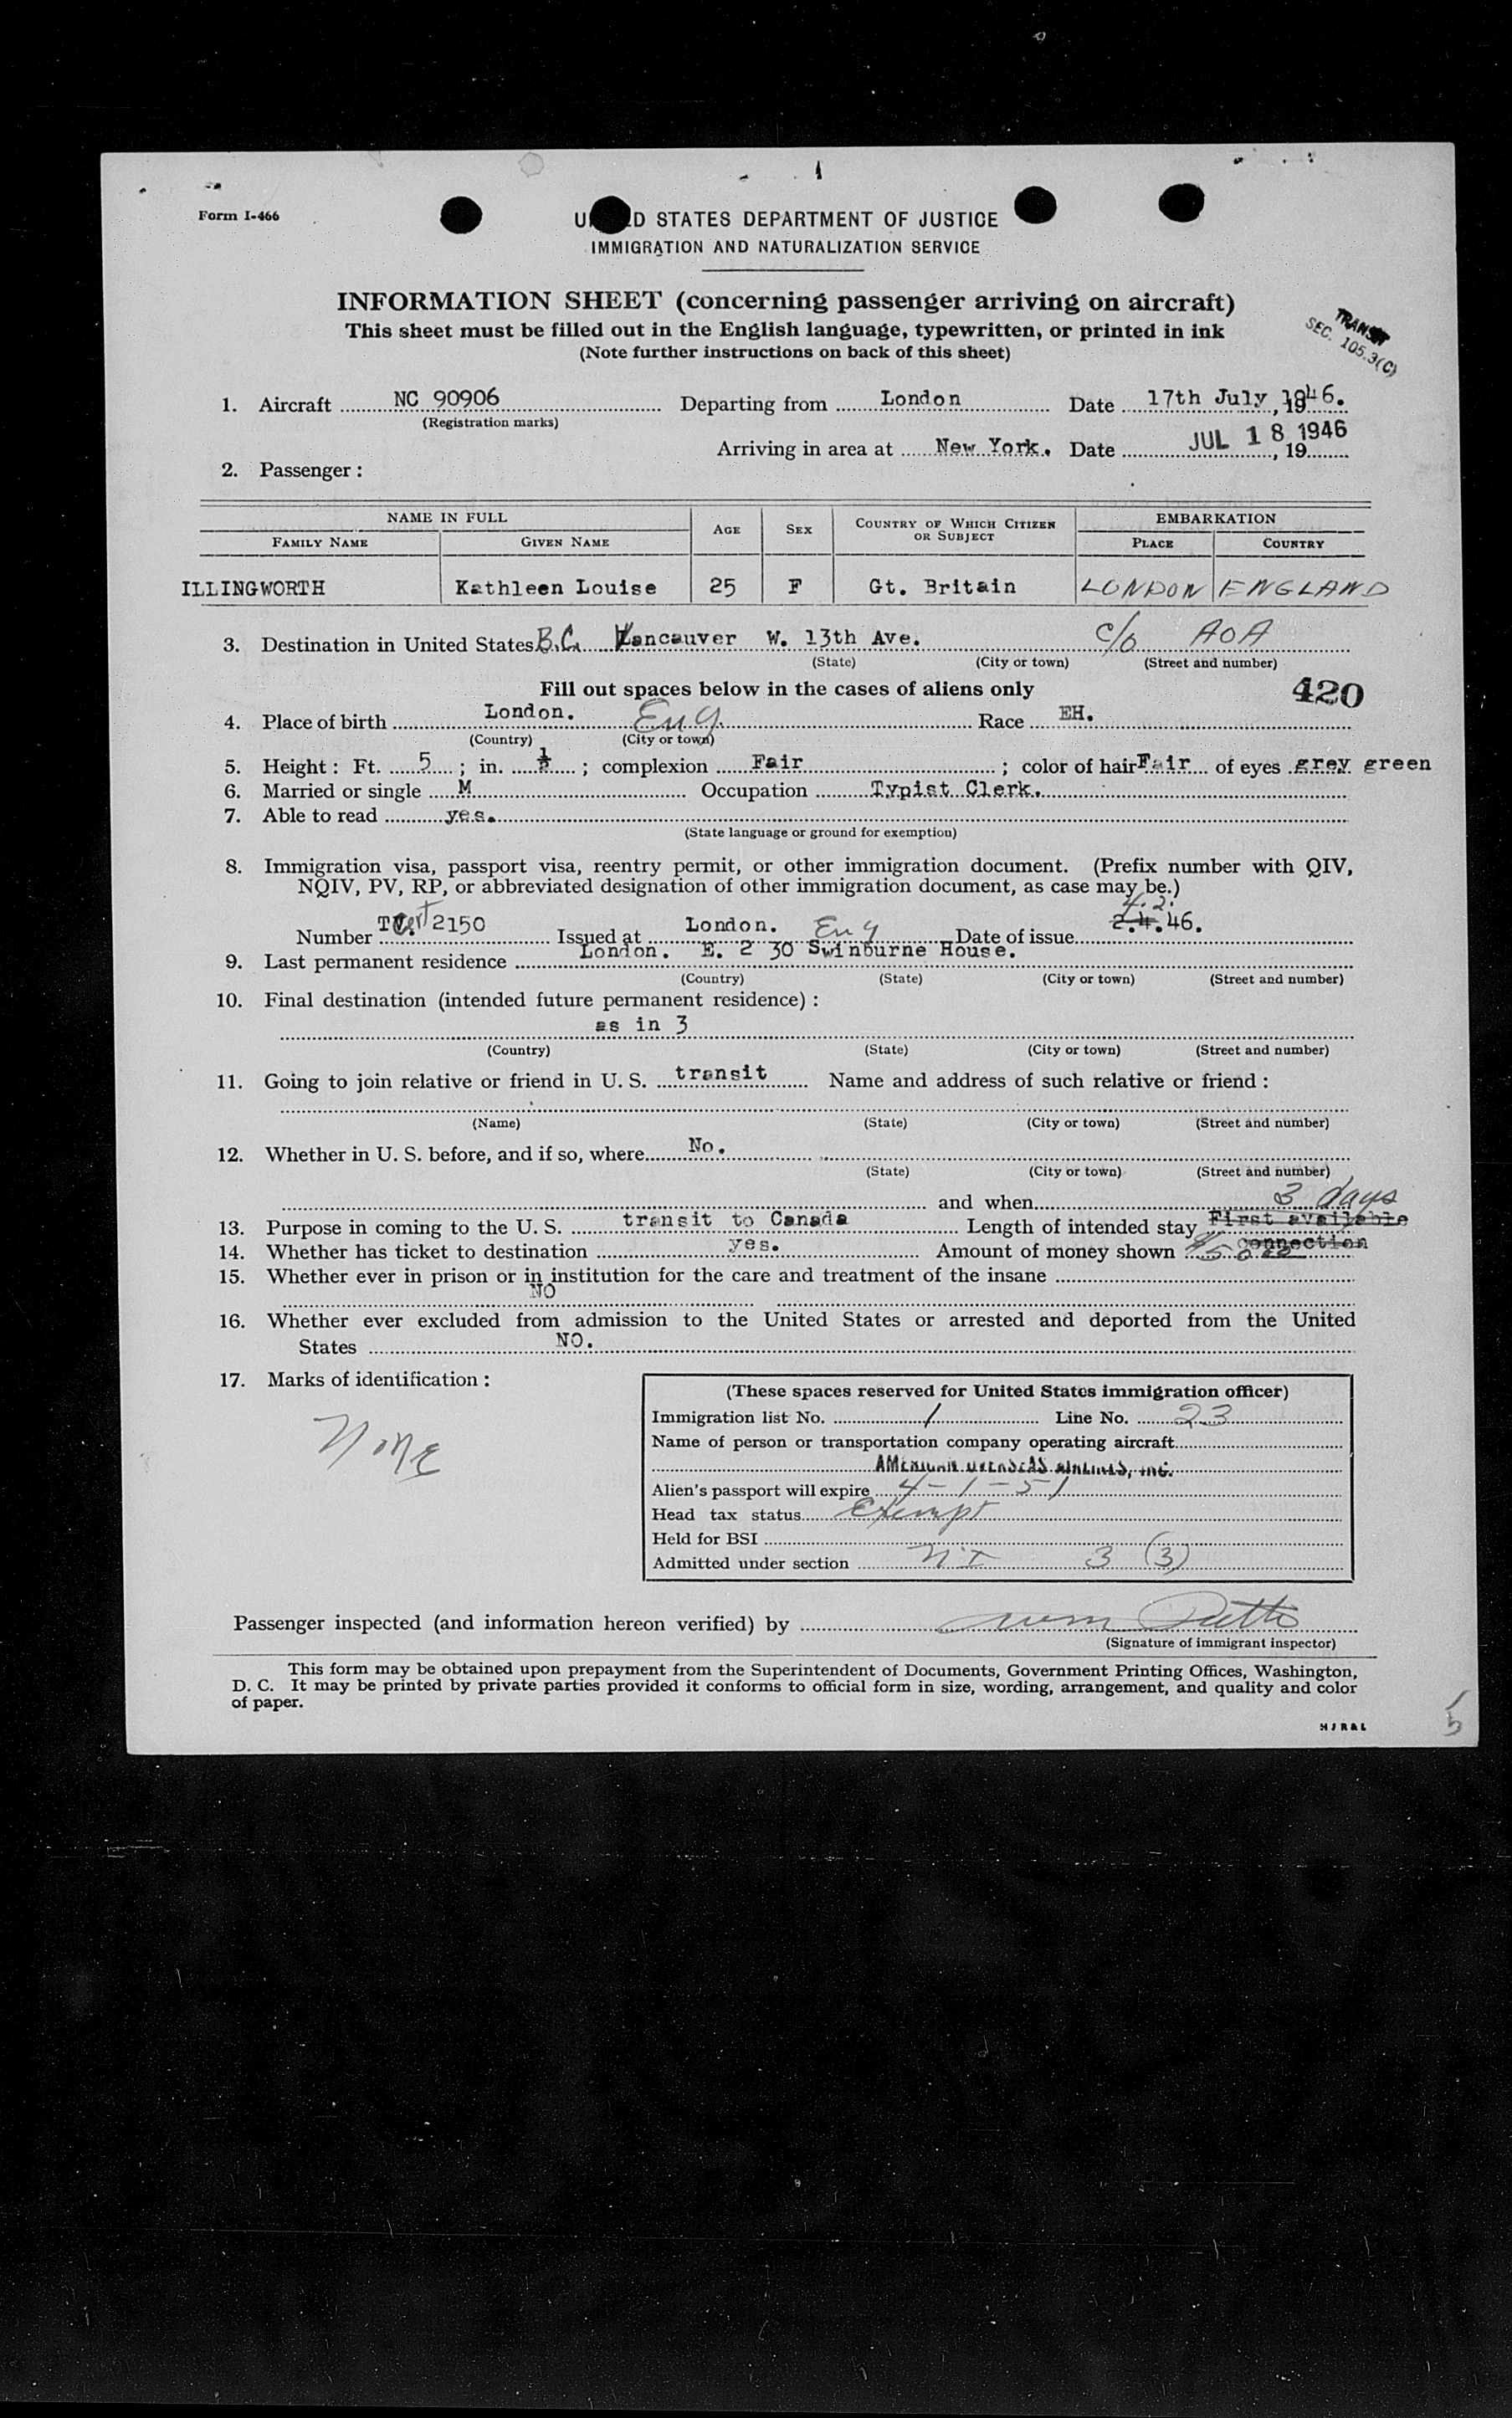 Form I-466
U D STATES DEPARTMENT OF JUSTICE
IMMIGRATION AND NATURALIZATION SERVICE
INFORMATION SHEET (concerning passenger arriving on aircraft)
This sheet must be filled out in the English language, typewritten, or printed in ink
(Note further instructions on back of this sheet)
TRANSIT
SEC. 105.3(C)
1. Aircraft NC 90906 Departing from London Date 17th July, 1946.
(Registration marks)
Arriving in area at New York. Date JUL 18 1946, 19
2. Passenger:
NAME IN FULL AGE SEX COUNTRY OF WHICH CITIZEN OR SUBJECT EMBARKATION
FAMILY NAME GIVEN NAME PLACE COUNTRY
ILLINGWORTH Kathleen Louise 25 F Gt. Britain LONDON ENGLAND
3. Destination in United States B.C. Vancauver W. 13th Ave. C/o AOA
(State) (City or town) (Street and number)
Fill out spaces below in the cases of aliens only 420
4. Place of birth London. Eng. Race EH.
(Country) (City or town)
5. Height: Ft. 5; in. ½; complexion Fair; color of hair Fair of eyes grey green
6. Married or single M Occupation Typist Clerk.
7. Able to read yes.
(State language or ground for exemption)
8. Immigration visa, passport visa, reentry permit, or other immigration document. (Prefix number with QIV,
NQIV, PV, RP, or abbreviated designation of other immigration document, as case may be.)
4.2.
Number T Cert 2150 Issued at London. Eng Date of issue 2.4.46.
9. Last permanent residence London. E. 2 30 Swinburne House.
(Country) (State) (City or town) (Street and number)
10. Final destination (intended future permanent residence):
as in 3
(Country) (State) (City or town) (Street and number)
11. Going to join relative or friend in U. S. transit Name and address of such relative or friend:
(Name) (State) (City or town) (Street and number)
12. Whether in U. S. before, and if so, where No.
(State) (City or town) (Street and number)
and when 3 days
13. Purpose in coming to the U. S. transit to Canada Length of intended stay First available
14. Whether has ticket to destination yes. Amount of money shown connection
15. Whether ever in prison or in institution for the care and treatment of the insane
NO
16. Whether ever excluded from admission to the United States or arrested and deported from the United
States NO.
17. Marks of identification:
None
(These spaces reserved for United States immigration officer)
Immigration list No. 1 Line No. 23
Name of person or transportation company operating aircraft
AMERICAN OVERSEAS AIRLINES, INC.
Alien's passport will expire 4-1-51
Head tax status Exempt
Held for BSI
Admitted under section 3 (3)
Passenger inspected (and information hereon verified) by
(Signature of immigrant inspector)
This form may be obtained upon prepayment from the Superintendent of Documents, Government Printing Offices, Washington,
D. C. It may be printed by private parties provided it conforms to official form in size, wording, arrangement, and quality and color
of paper.
5